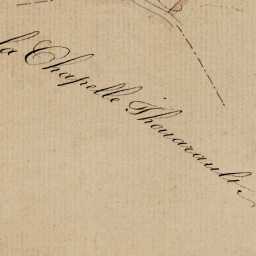 la Chapelle Thouarault.